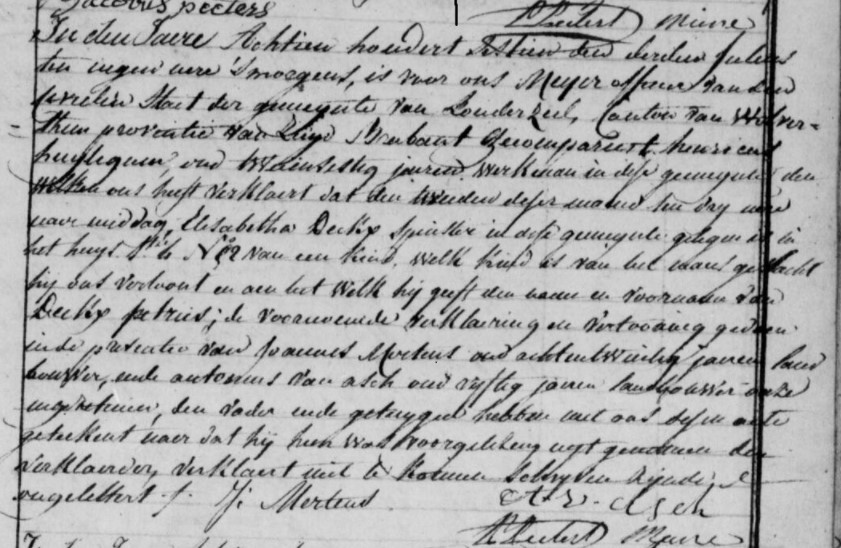 Jacobus peeters
Meire
In den Jaere Achtien hondert sesthien den derden Julius
ten negen uere 's morgens, is voor ons Meyer officier van den
civielen Staet der gemeynte van Londerzeel, Canton van Wolver=
them provintie van Zuyd Brabant Gecompareert henricus
oud jaeren werkman in dese gemeynte den
welken ons heeft verklaert dat den tweeden deser maend ten dry uere
naer middag, Elisabetha Deckx spinster in dese gemeynte gelegen is in
het huys van een kind, welk kind is van het mans geslacht
hij ons vertoont en aen het welk hij geeft den naem en voornaem van
Deckx petrus; de voornoemde verklaering en vertooning gedaen
in de presentie van Joannes Mertens oud achtentwintig jaeren land
bouwer, ende antonius van asch oud vyftig jaeren landbouwer onze
ingezetenen, den vader ende getuygen hebben met ons desen acte
geteekent naer dat hij hun was voorgelesen uyt genomen den
verklaerder, verklaert niet te konnen schryven zynde
ongelettert J: Mertens
A. V. Asch
Meire